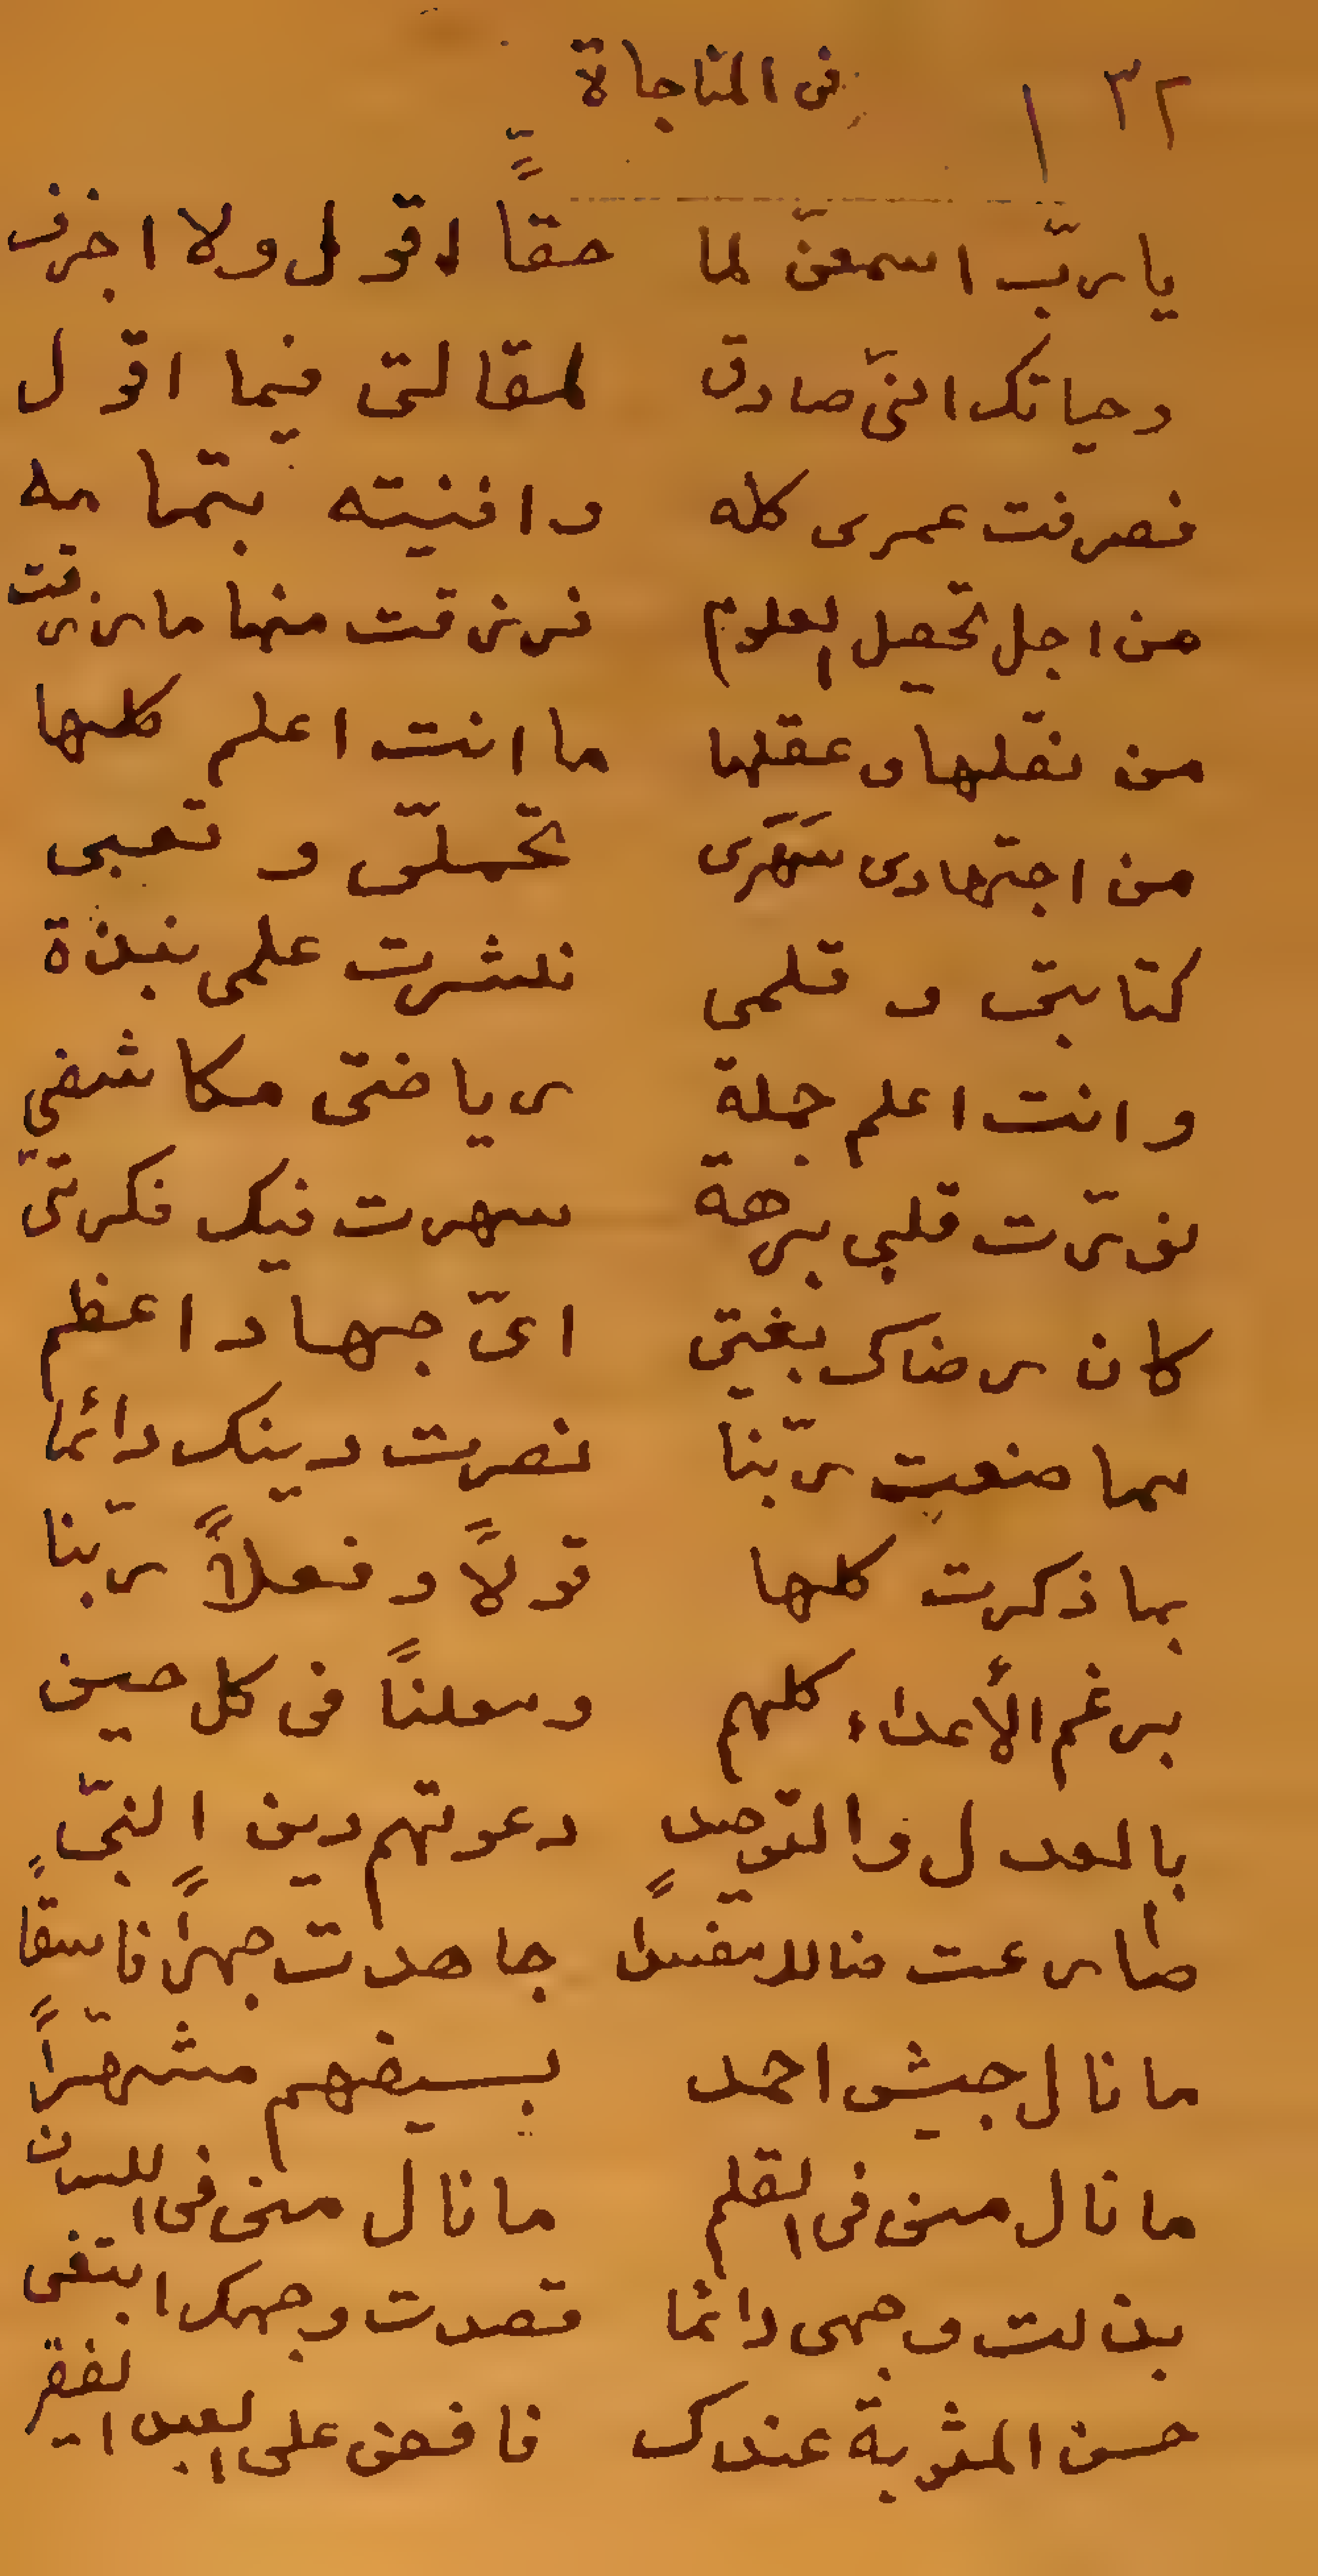 ١٣٢ فى المناجاة
يا ربّ اسمعنّ لما حقاً اقول ولا اخرف
وحياتك انىّ صادق لمقالتى فيما اقول
فصرفت عمرى كله وافنيته بتمامه
من اجل تحصيل العلوم فرزقت منها ما رزقت
من نقلها و عقلها ما انت اعلم كلها
من اجتهادى سَهَرى تحملّى و تعبى
كتابتى و قلمى نشرت علمى نبذة
وانت اعلم جملة رياضتى مكاشفي
نورّت قلبى برهة سهرت فيك فكرتىّ
كان رضاك بغيتى اىّ جهاد اعظم
مما صنعت ربّنا نصرت دينك دائما
بما ذكرت كلها قولاً و فعلاً ربّنا
برغم الأعداء كلهم ومعلناً فى كل حين
بالعدل والتّوحيد دعوتهم دين النبىّ
صارعت ضالا مفسداً جاهدت جهراً فاسقاً
ما نال جيش احمد بسيفهم مشهّراً
ما نال منى فى القلم ما نال منى فى اللسان
بذلت وجهى دائما قصدت وجهك ابتغى
حسن المثوبة عندك فافض على العبد الفقير